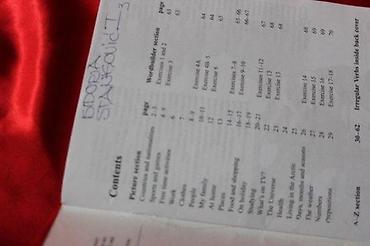 Contents
Picture section page Wordbuilder section page
Countries and nationalities 2–3 Exercises 1 and 2 63
Sports and games 4–5 Exercise 3 63
Free time activities 6
Work 7
Clothes
People 8–9 Exercise 4A 64
My family 10–11 Exercise 4B, 5 64
12 Exercise 6 65
Places 13
Food and shopping 14–15 Exercises 7–8 65–66
On holiday 16–17 Exercises 9–10 66–67
Studying 18–19
What's on TV? 20–21 Exercises 11–12 67
The Universe 22 68
Health 23 Exercise 13 68
Living in the Arctic 24
Days, months and seasons 25
The weather 26 Exercise 14 68
Numbers
Prepositions 29 Exercises 17–18 70
A–Z section 30–62 Irregular Verbs inside back cover